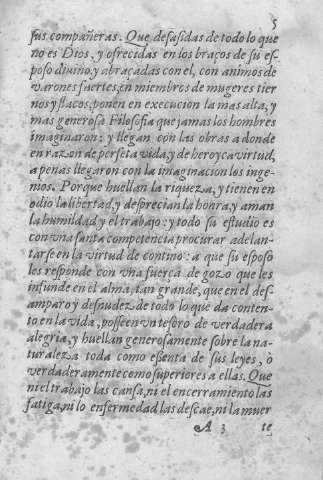 5
sus compañeras. Que desasidas de todo lo que
no es Dios, y ofrecidas en los braços de su es-
poso diuino, y abraçadas con el, con animos de
varones fuertes, en miembros de mugeres tier
nos y flacos, ponen en execucion la mas alta, y
mas generosa Filosofia que jamas los hombres
imaginaron: y llegan con las obras a donde
en razon de perfeta vida, y de heroyca virtud,
apenas llegaron con la imaginacion los inge-
nios. Porque huellan la riqueza, y tienen en
odio la libertad, y desprecian la honra, y aman
la humildad y el trabajo: y todo su estudio es
con vna santa competencia procurar adelan-
tarse en la virtud de contino: a que su esposo
les responde con vna fuerca de gozo que les
infunde en el alma, tan grande, que en el des-
amparo y desnudez de todo lo que da conten-
to en la vida, posseen vn tesoro de verdadera
alegria, y huellan generosamente sobre la na-
turaleza toda como essenta de sus leyes, ò
verdaderamente como superiores a ellas. Que
ni el trabajo las cansa, ni el encerramiento las
fatiga, ni lo enfermedad las descae, ni la muer
A 3 te